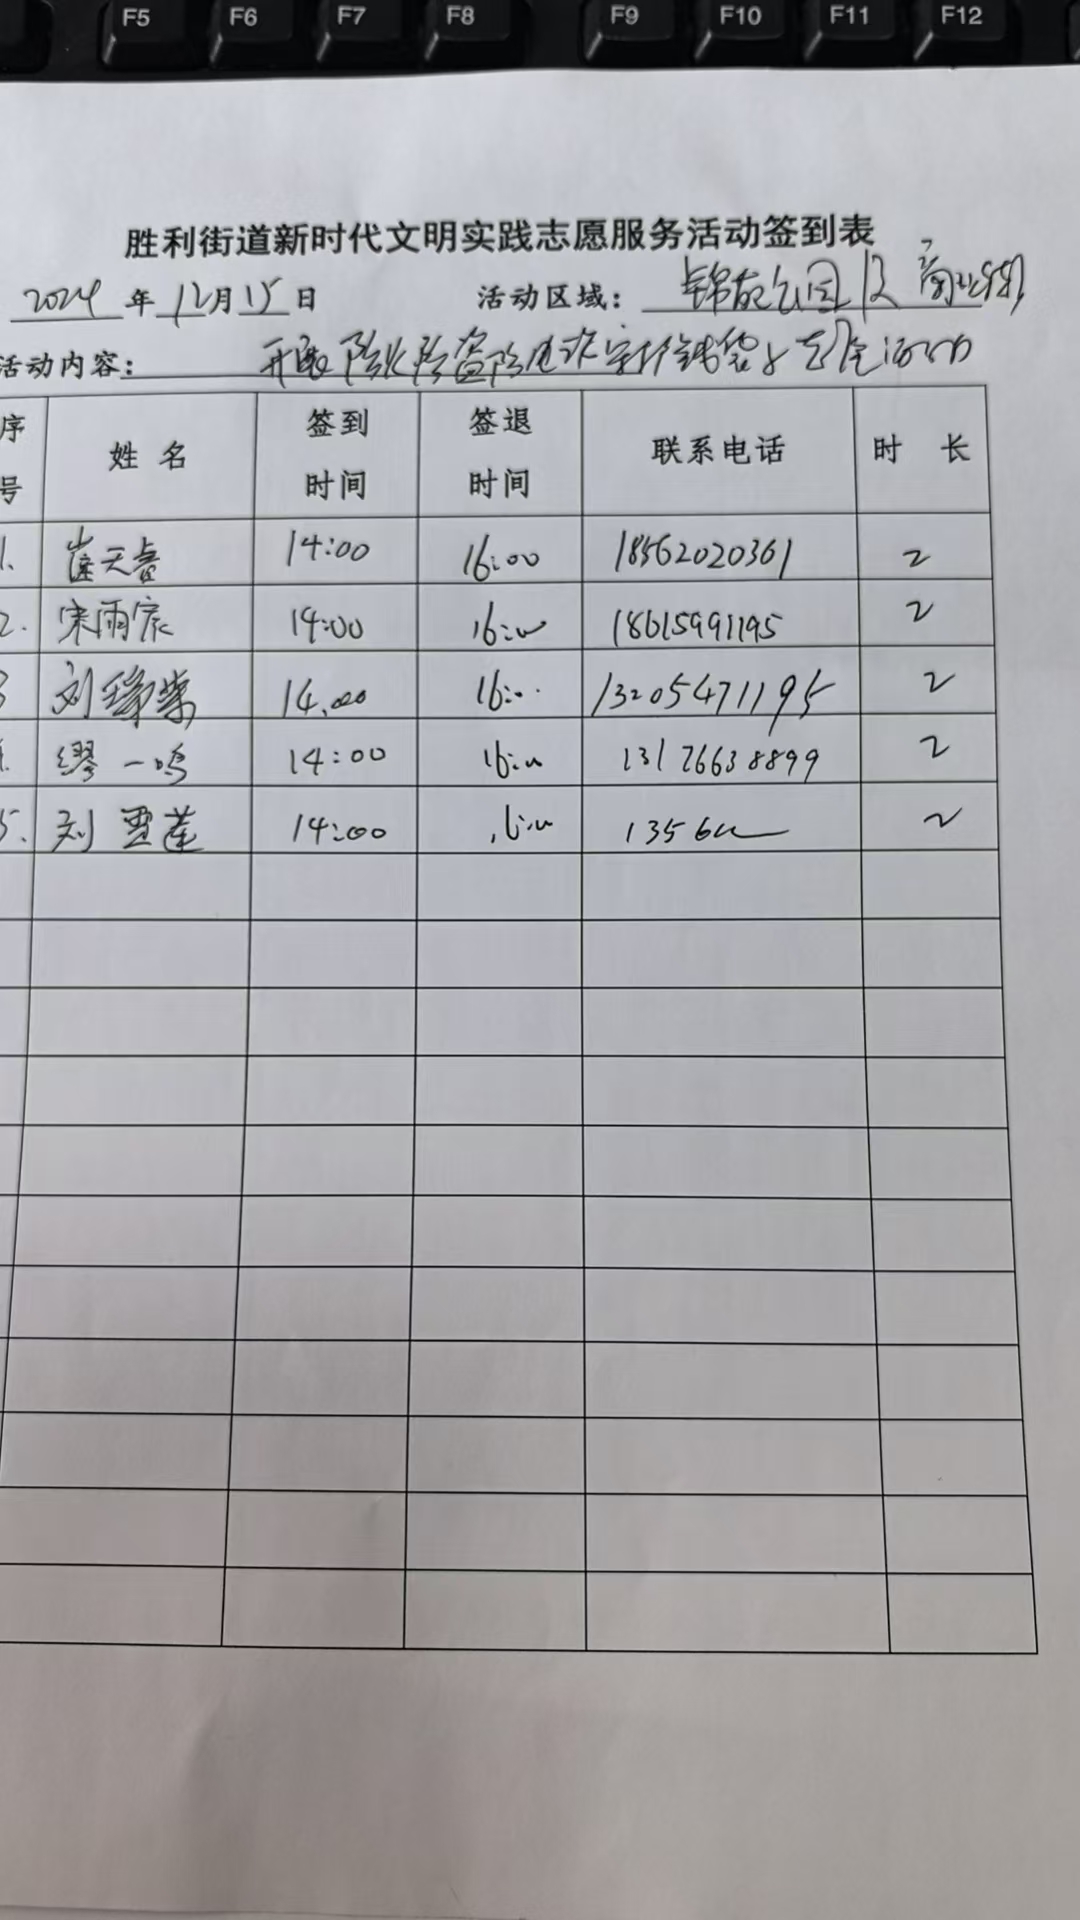 F5 F6 F7 F8 F9 F10 F11 F12
胜利街道新时代文明实践志愿服务活动签到表
2024年12月15日 活动区域: 锦苑公园及商业街
活动内容: 开展防火防盗防电诈宣传
序号 姓名 签到时间 签退时间 联系电话 时长
1. 崔天 14:00 16:00 18562020361 2
2. 宋雨宸 14:00 16:00 18615991195 2
3 刘 14.00 16:0. 13205471195 2
缪一鸣 14:00 16:00 13176638899 2
5. 刘雪莲 14:00 16:00 1356 2